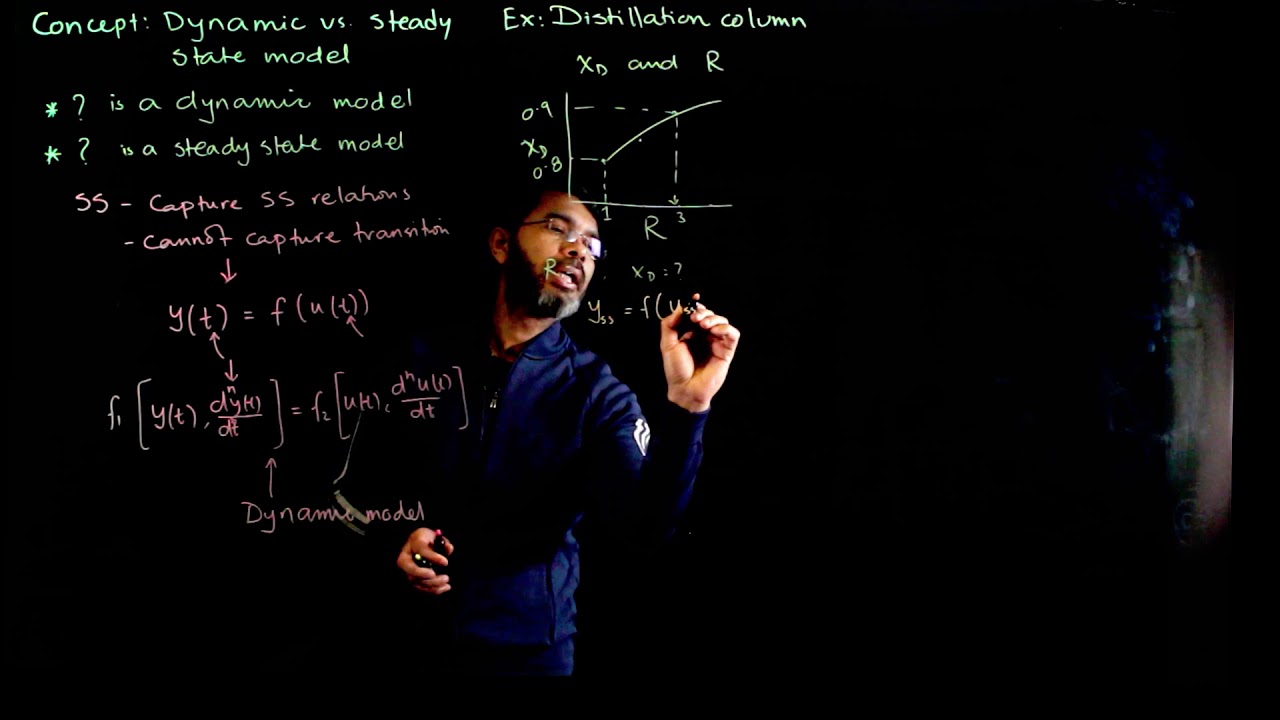 Concept: Dynamic vs. steady
state model
* ? is a dynamic model
* ? is a steady state model
SS - Capture SS relations
- Cannot capture transition
↓
y(t) = f(u(t))
f₁[y(t), dⁿy(t)/dtⁿ] = f₂[u(t), dⁿu(t)/dt]
Dynamic model
Ex: Distillation column
x_D and R
0.9
x_D
0.8
1
3
R
R
x_D = ?
y_ss = f(u_ss